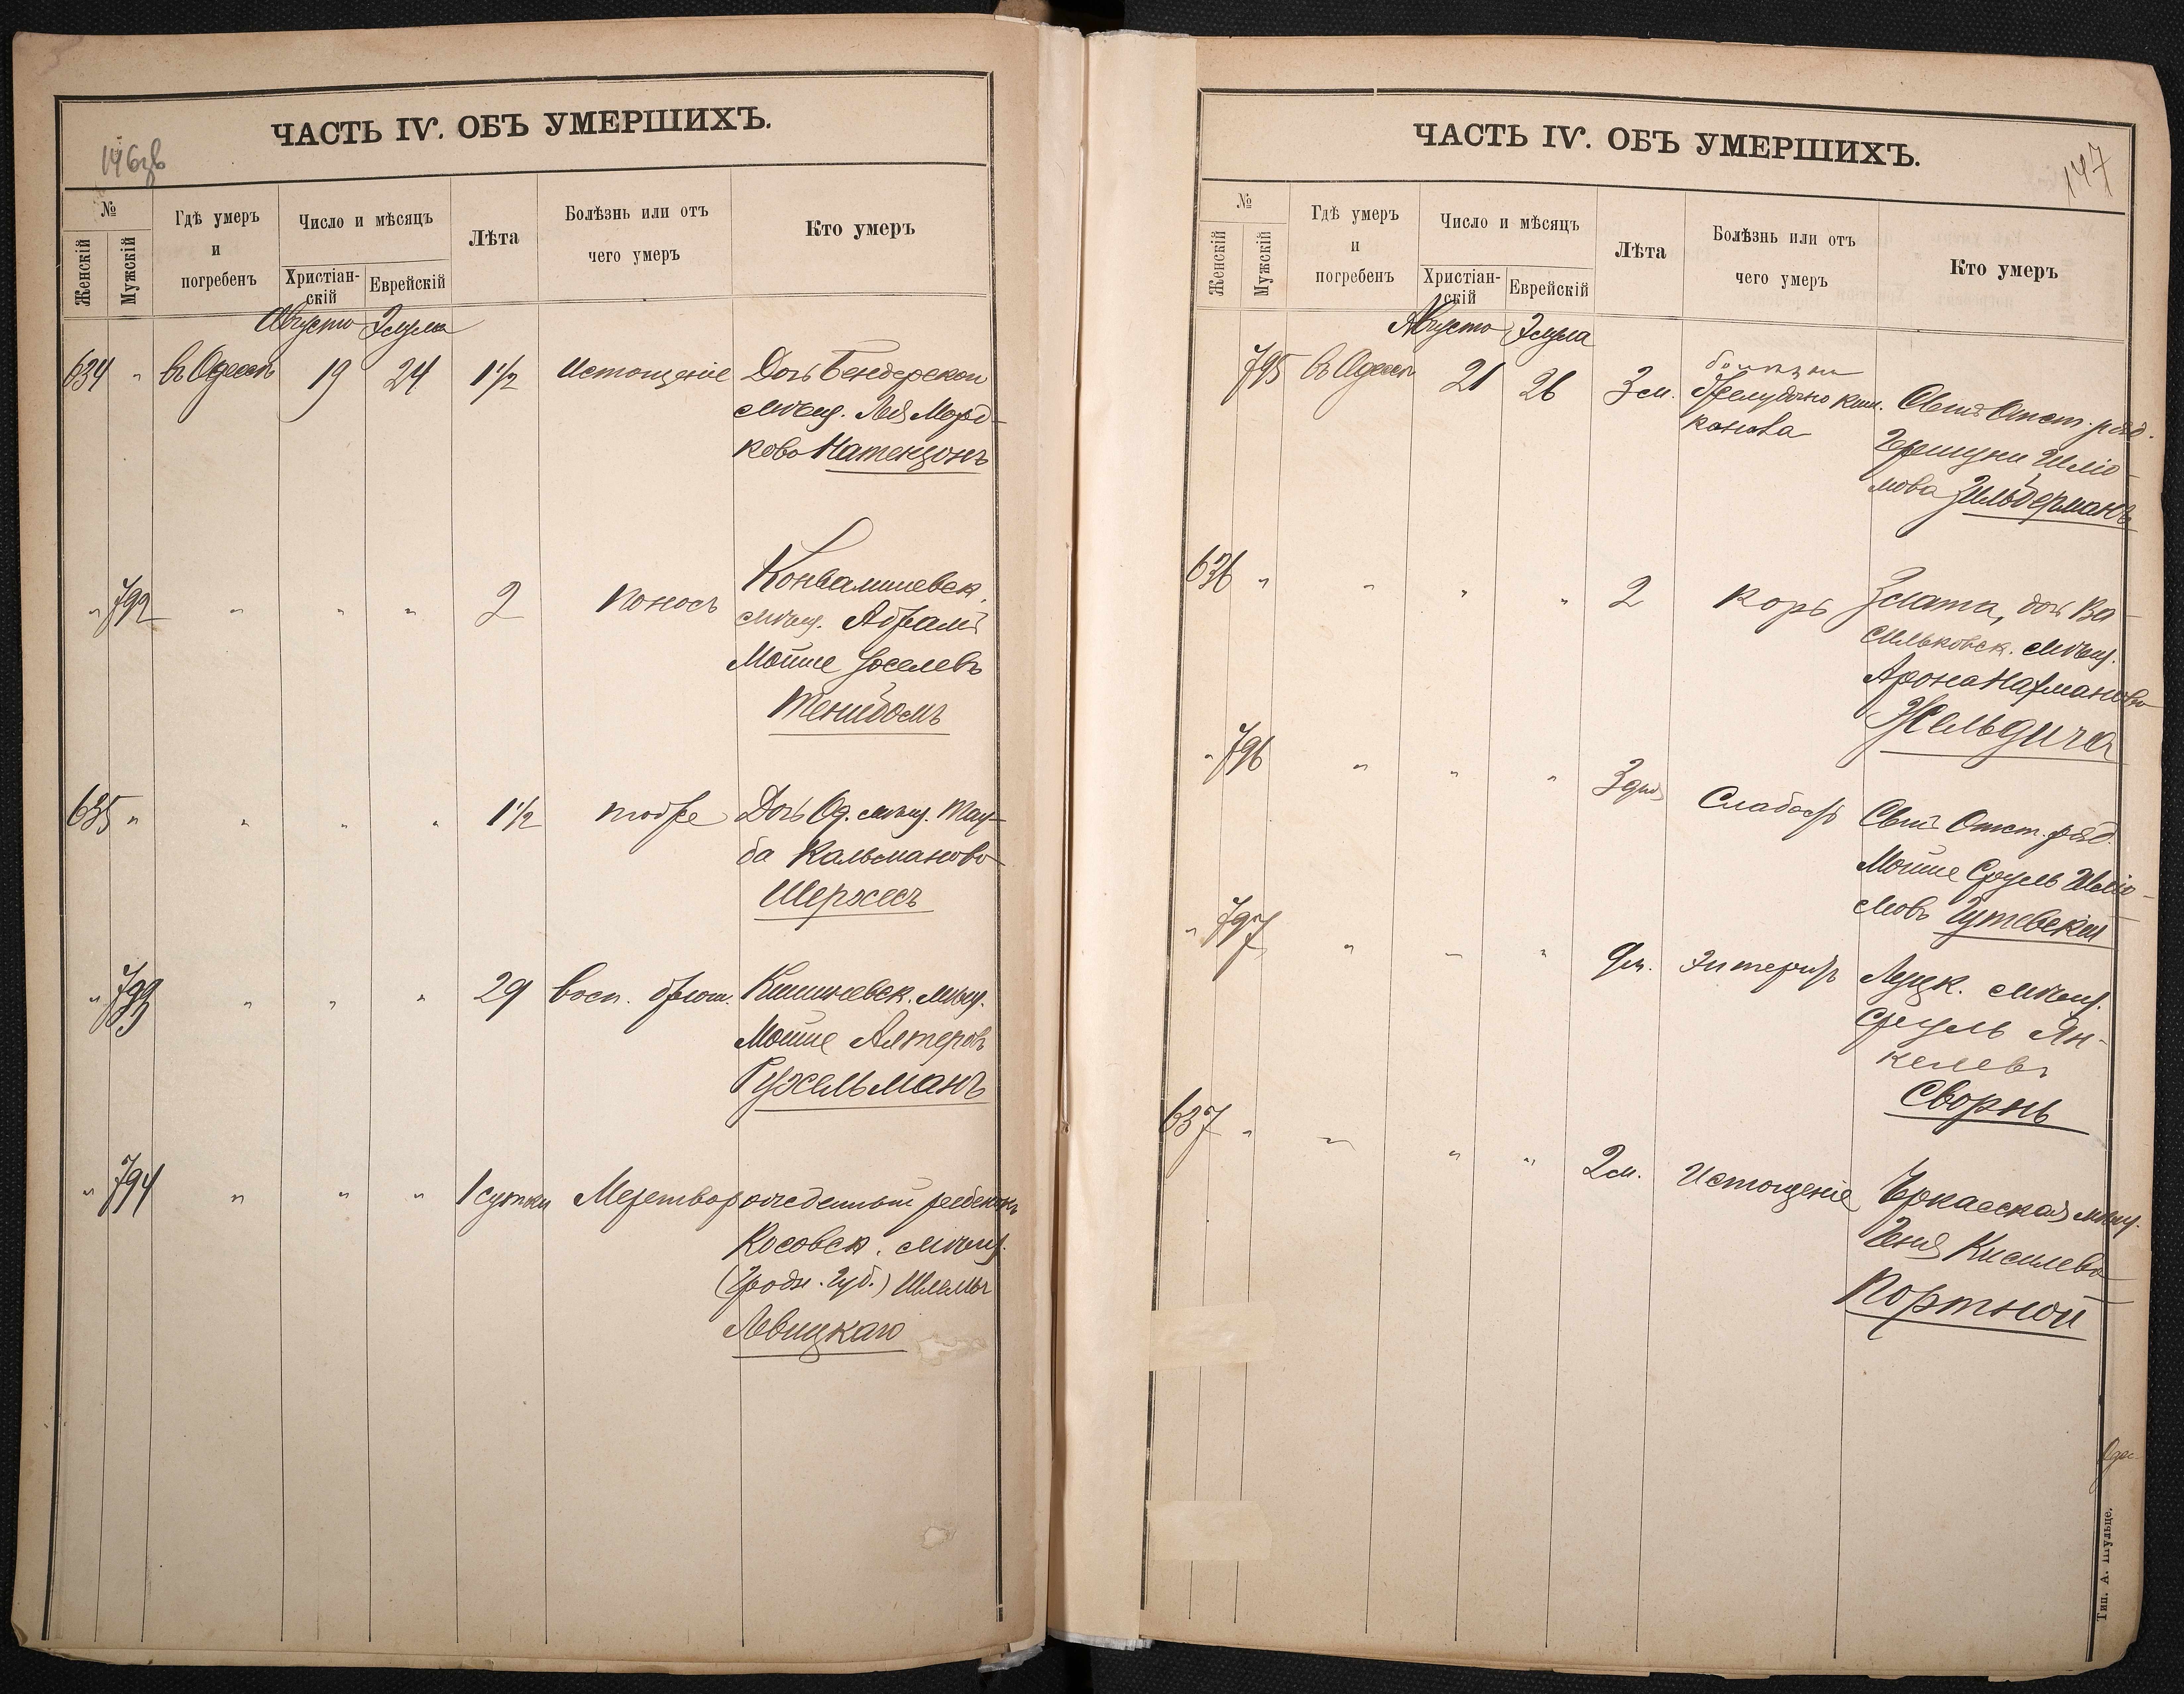 ЧАСТЬ IV. ОБЪ УМЕРШИХЪ.
146об
№
Женскій
Мужскій
Гдѣ умеръ
и
погребенъ
Число и мѣсяцъ
Христіан-
скій
Еврейскій
Лѣта
Болѣзнь или отъ
чего умеръ
Кто умеръ
Августа Элула
634 " въ Одессѣ 19 24 1 1/2 Истощеніе Дочь Бендерской
мѣщ. Лея Морд-
кова Натензонъ
" 792 " " " 2 поносъ
мѣщ. Абрамъ
Мойше Іоселевъ
Тенибомъ
635 " " " " 1 1/2 тоже Дочь Од. мѣщ. Тау-
ба Кальманова
Шерхесъ
" 793 " " " 29 восп. брюш. Кишиневск. мѣщ.
Мойше Алтеровъ
Гужельманъ
" 794 " " " 1 сутки Мертворожденный ребенокъ
Косовск. мѣщ.
(Гродн. Губ.) Шлемы
Левицкаго
ЧАСТЬ IV. ОБЪ УМЕРШИХЪ.
147
№
Женскій
Мужскій
Гдѣ умеръ
и
погребенъ
Число и мѣсяцъ
Христіан-
скій
Еврейскій
Лѣта
Болѣзнь или отъ
чего умеръ
Кто умеръ
Августа Элула
795 въ Одессѣ 21 26 3 м. болѣзнь
желудочно киш.
канала
Сынъ Отст. ряд.
Гершуни Шліо-
мова Зильберманъ
636 " " " " 2 Корь Злата, дочь Ва-
сильковск. мѣщ.
Арона Нахманова
Жельдича
" 796 " " " 3 дня Слабость Сынъ Отст. ряд.
Мойше Сруль Шліо-
мовъ Гутевскій
" 797 " " " 9 м. Энтеритъ Луцк. мѣщ.
Сруль Ян-
келевъ
Сворнь
637 " " " " 2 м. Истощеніе Черкасская мѣщ.
Геня Кисилева
Портной
Одес
Тип. А. Шульце.